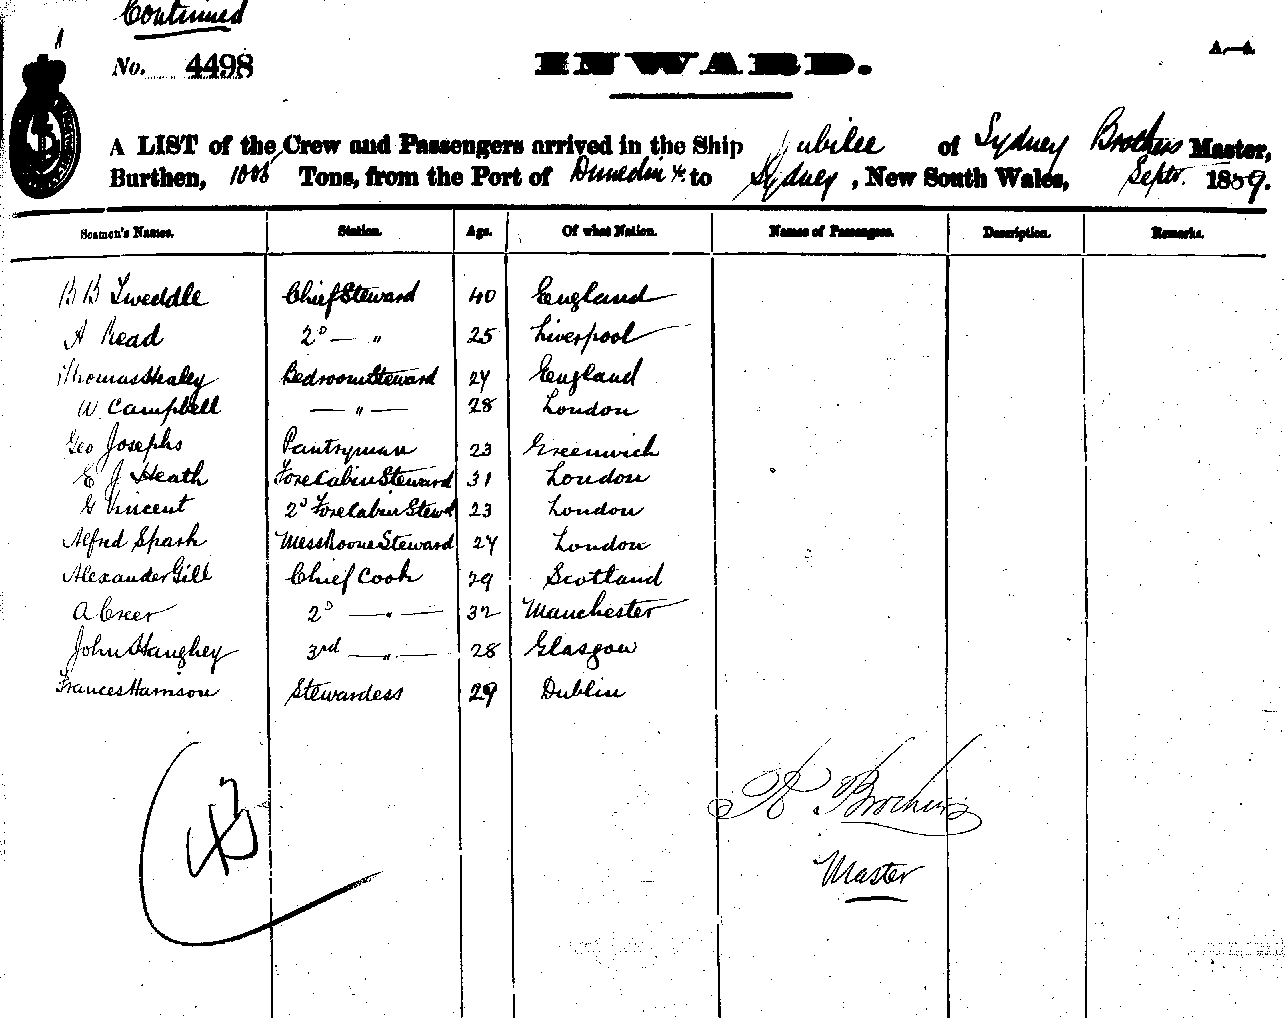 Continued
No. 4498 INWARD. A.—A.
A LIST of the Crew and Passengers arrived in the Ship Jubilee of Sydney Brothers Master,
Burthen, Tons, from the Port of Dunedin &c to Sydney, New South Wales, Septr. 1889.
Seamen's Names. Station. Age. Of what Nation. Names of Passengers. Description. Remarks.
B B Tweddle Chief Steward 40 England
A Read 2d — " 25 Liverpool
Thomas Healey Bedroom Steward 24 England
W. Campbell — " — 28 London
Geo Josephs Pantryman 23 Greenwich
E J Heath Fore Cabin Steward 31 London
G Vincent 2d Fore Cabin Stewd 23 London
Alfred Spark Mess Room Steward 24 London
Alexander Gill Chief Cook 29 Scotland
A Creer 2d — " — 32 Manchester
John Haughey 3rd — " — 28 Glasgow
Frances Harrison Stewardess 29 Dublin
43
A Brothers
Master